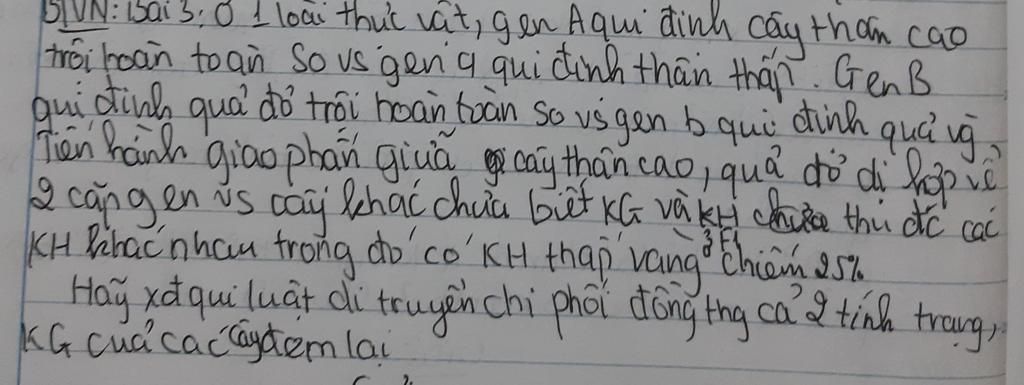 BTVN: Bài 3: Ở 1 loài thực vật, gen A qui định cây thân cao
trội hoàn toàn so vs gen a qui định thân thấp. Gen B
qui định quả đỏ trội hoàn toàn so vs gen b qui định quả vg
Tiến hành giao phấn giữa cây thân cao, quả đỏ dị hợp về
2 cặp gen vs cây khác chưa biết KG và KH thu đc các
KH khác nhau trong đó có KH thấp vàng ở F1 chiếm 25%
Hãy xđ qui luật di truyền chi phối đồng thg cả 2 tính trạng,
KG của các cây đem lai